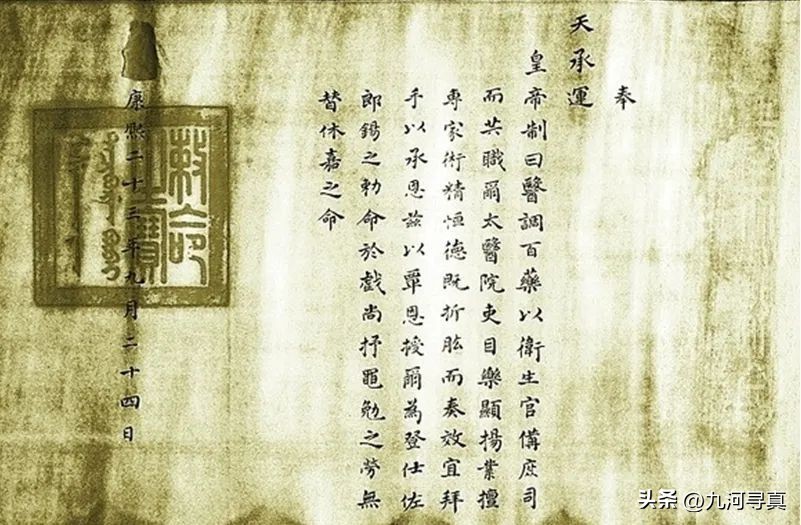 奉
天承運
皇帝制曰醫調百藥以衛生官備庶司
而共職爾太醫院吏目樂顯揚業擅
專家術精恒德既折肱而奏效宜拜
手以承恩茲以覃恩授爾為登仕佐
郎錫之勅命於戲尚抒黽勉之勞無
替休嘉之命
康熙二十三年九月二十四日
敕命之寶
头条 @九河寻真